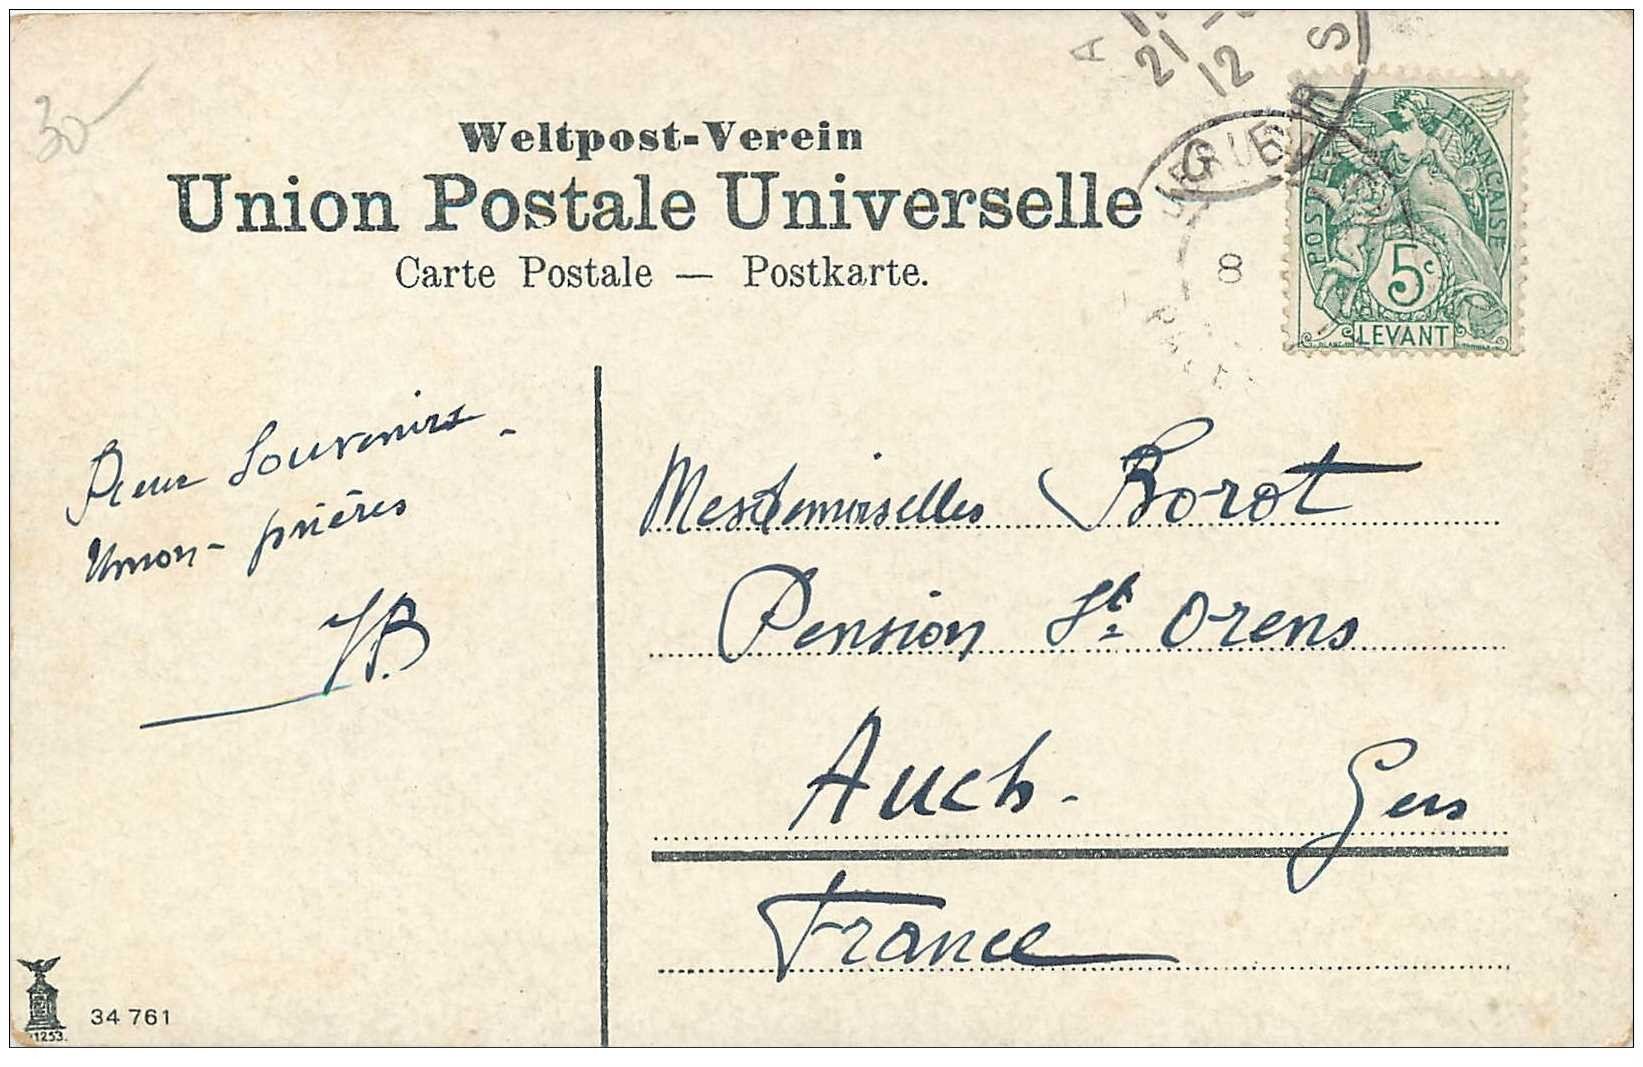 30-
Weltpost-Verein
Union Postale Universelle
Carte Postale — Postkarte.
A
21
12
S
8
POSTES
FRANÇAISE
5c
LEVANT
Pieux Souvenirs -
Union - prières
JB
Mesdemoiselles Borot
Pension St. Orens
Auch - Gers
France
34 761
1253.